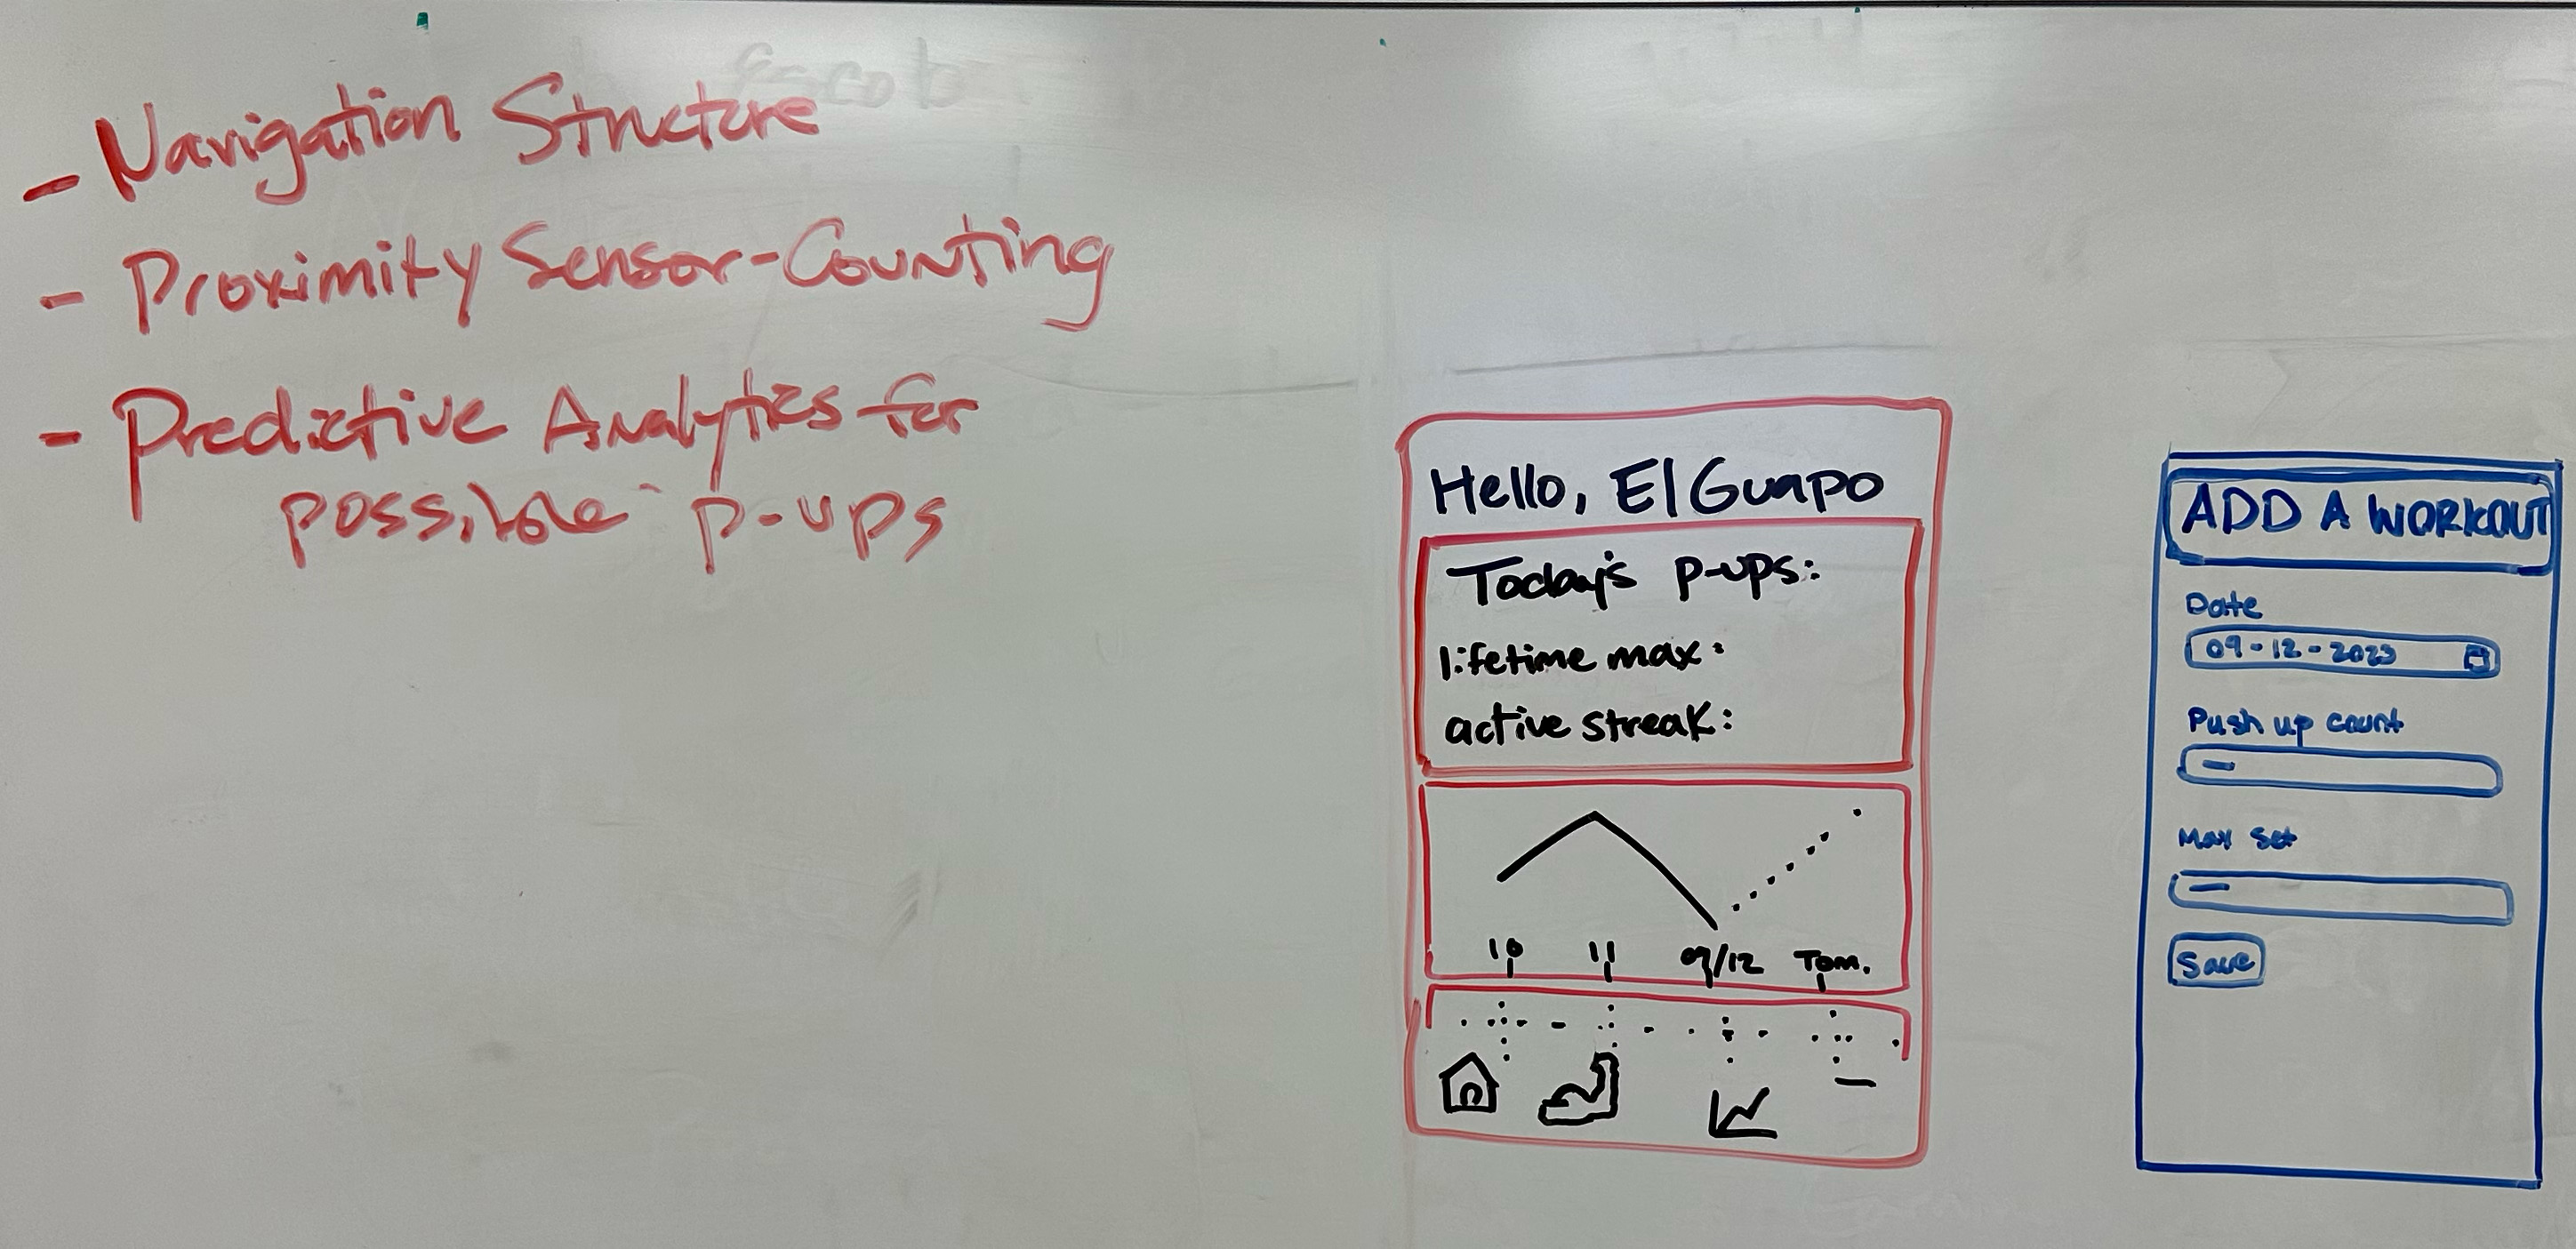 - Navigation Structure
- Proximity Sensor-Counting
- Predictive Analytics for
possible p-ups
Hello, El Guapo
Today's p-ups:
lifetime max:
active streak:
10 11 09/12 Tom.
ADD A WORKOUT
Date
09-12-2023
Push up count
Max Set
Save